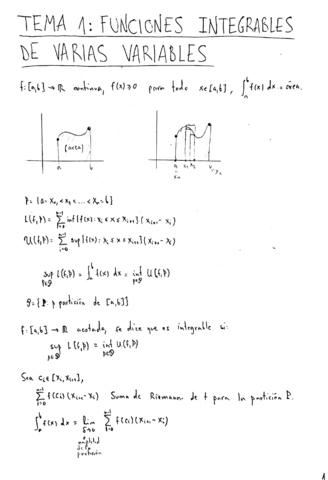 TEMA 1: FUNCIONES INTEGRABLES
DE VARIAS VARIABLES
f: [a,b] → ℝ continua, f(x) ≥ 0 para todo x ∈ [a,b], ∫_a^b f(x) dx = área.
(área)
a b
a x₁ x₂
x₀
P = {a = x₀ < x₁ < ... < xₙ = b}
L(f,P) = Σ_{i=0}^{n-1} inf{f(x): xᵢ ≤ x ≤ xᵢ₊₁}(xᵢ₊₁ - xᵢ)
U(f,P) = Σ_{i=0}^{n-1} sup{f(x): xᵢ ≤ x ≤ xᵢ₊₁}(xᵢ₊₁ - xᵢ)
sup_{P∈𝒫} L(f,P) = ∫_a^b f(x) dx = inf_{P∈𝒫} U(f,P)
𝒫 = {P: P partición de [a,b]}
f: [a,b] → ℝ acotada, se dice que es integrable si:
sup_{P∈𝒫} L(f,P) = inf_{P∈𝒫} U(f,P)
Sea cᵢ ∈ [xᵢ, xᵢ₊₁],
Σ_{i=0}^{n-1} f(cᵢ)(xᵢ₊₁ - xᵢ) Suma de Riemann de f para la partición P.
∫_a^b f(x) dx = lim_{δ→0} Σ_{i=0}^{n-1} f(cᵢ)(xᵢ₊₁ - xᵢ)
amplitud
de la
partición
1